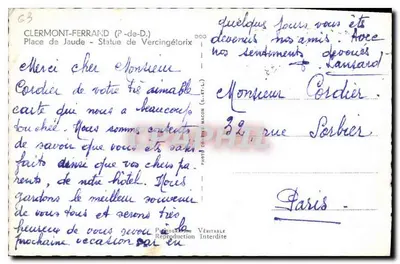 63
CLERMONT-FERRAND (P.-de-D.)
Place de Jaude - Statue de Vercingétorix
Merci cher Monsieur
Cordier de votre très aimable
carte qui nous a beaucoup
touchée. Nous sommes contents
de savoir que vous êtes
faits que vos chers pa-
rents, de notre hôtel. Nous
gardons le meilleur souvenir
de vous tous et serons très
heureux de vous revoir à la
prochaine occasion car en
quelques jours vous êtes
devenus nos amis. Avec
nos sentiments dévoués
Lansard
Monsieur Cordier
32 rue Sorbier
Paris
Véritable
Reproduction Interdite